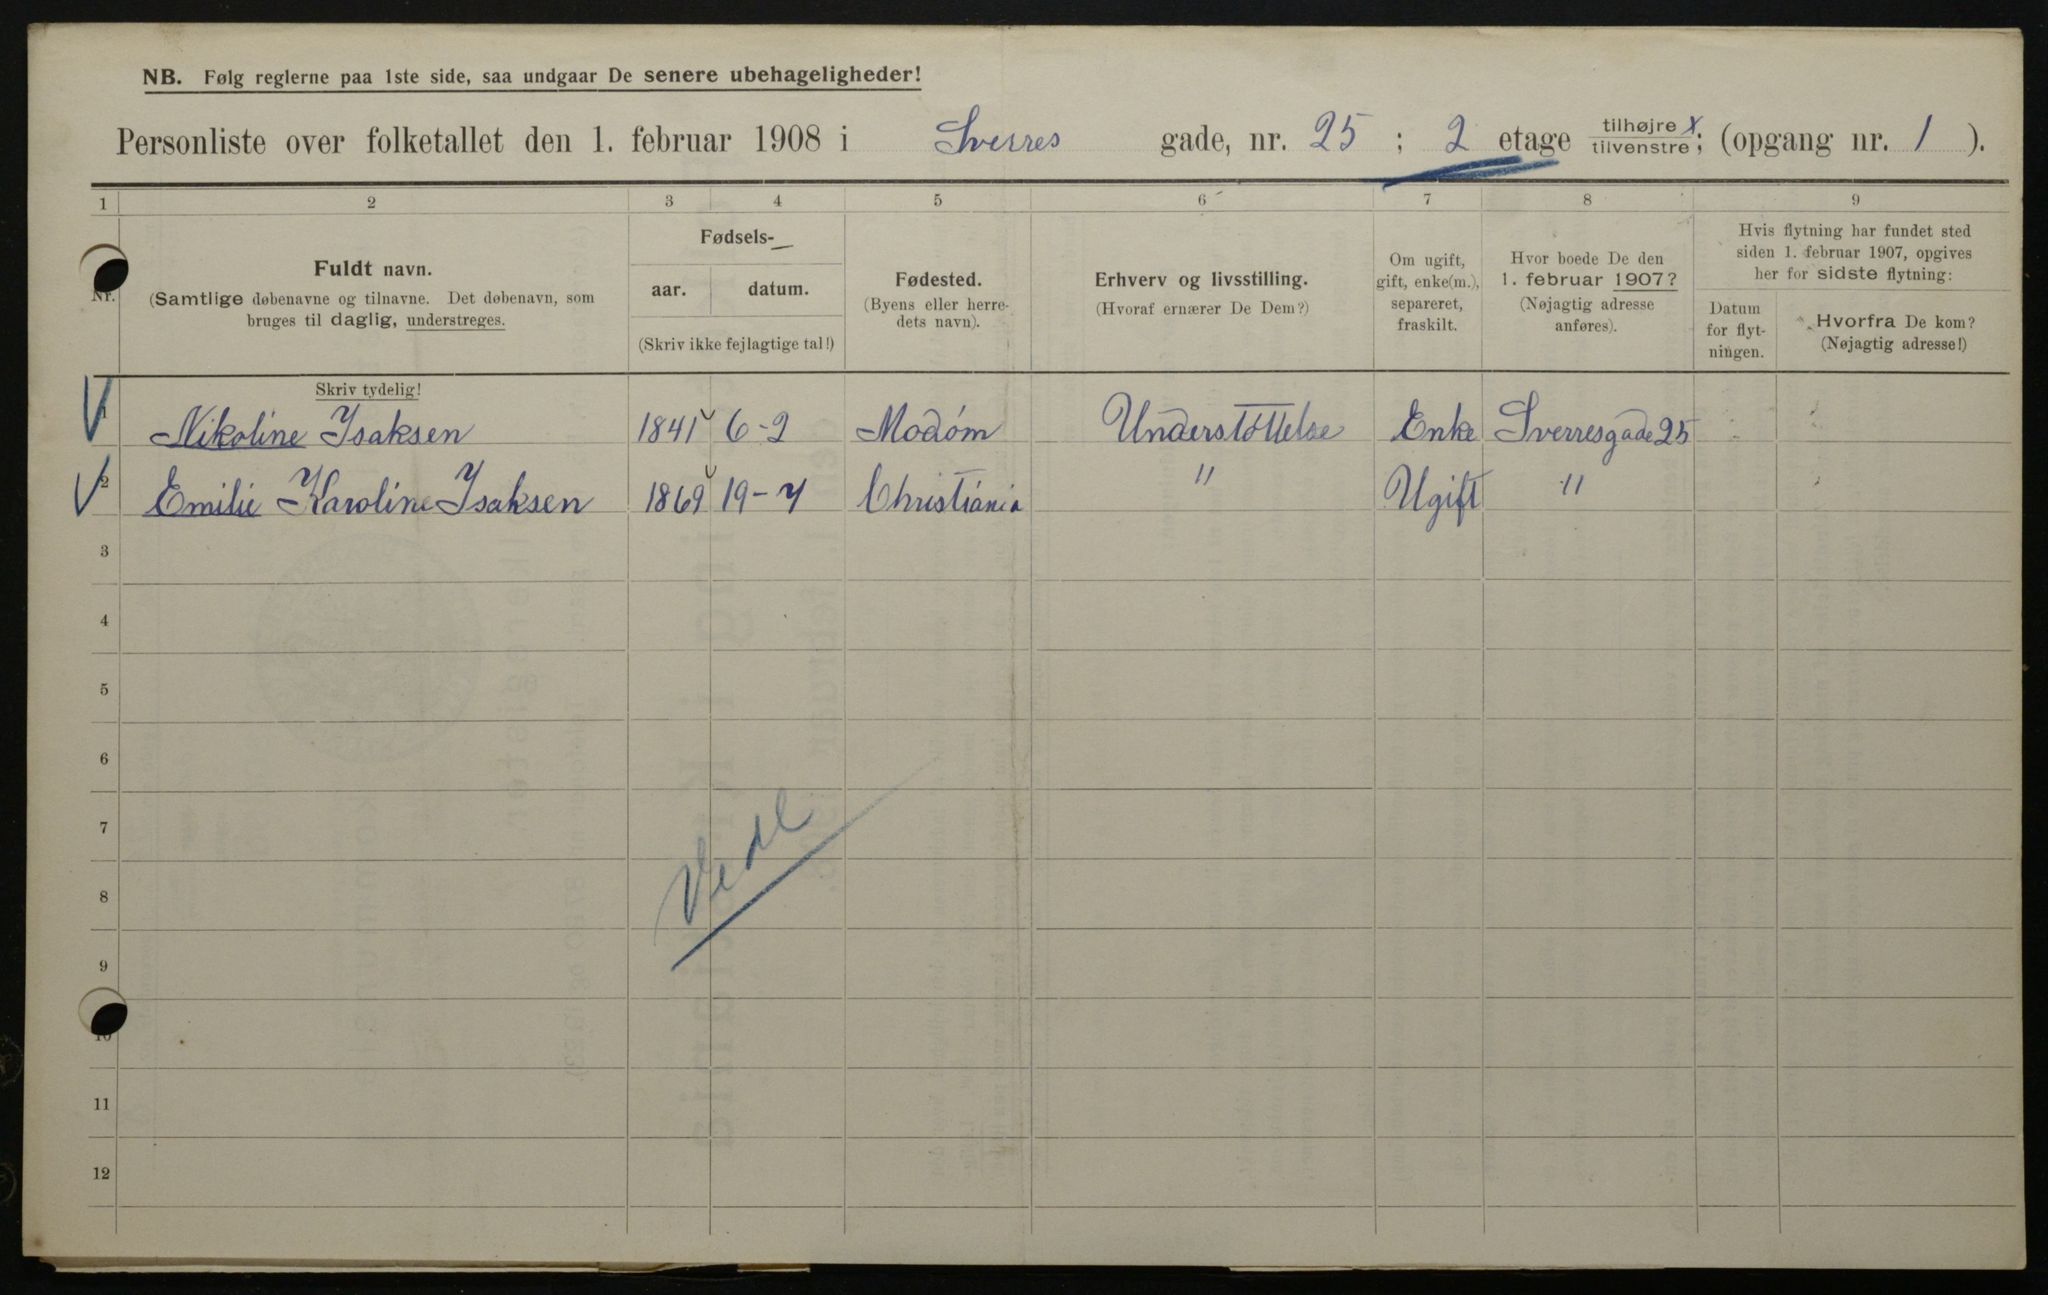 NB. Følg reglerne paa 1ste side, saa undgaar De senere ubehageligheder!
Personliste over folketallet den 1. februar 1908 i Sverres gade, nr. 25 ; 2 etage tilhøjre x / tilvenstre; (opgang nr. 1 ).
1 2 3 4 5 6 7 8 9
Nr.
Fuldt navn.
(Samtlige døbenavne og tilnavne. Det døbenavn, som
bruges til daglig, understreges.
Fødsels-
aar. datum.
(Skriv ikke fejlagtige tal!)
Fødested.
(Byens eller herre-
dets navn).
Erhverv og livsstilling.
(Hvoraf ernærer De Dem?)
Om ugift,
gift, enke(m.),
separeret,
fraskilt.
Hvor boede De den
1. februar 1907?
(Nøjagtig adresse
anføres).
Hvis flytning har fundet sted
siden 1. februar 1907, opgives
her for sidste flytning:
Datum
for flyt-
ningen.
Hvorfra De kom?
(Nøjagtig adresse!)
Skriv tydelig!
1 Nikoline Ysaksen 1841 6-2 Modøm Understøttelse Enke Sverresgade 25
2 Emilie Karoline Ysaksen 1869 19-7 Christiania " Ugift "
3
4
5
6
7
8
9
10
11
12